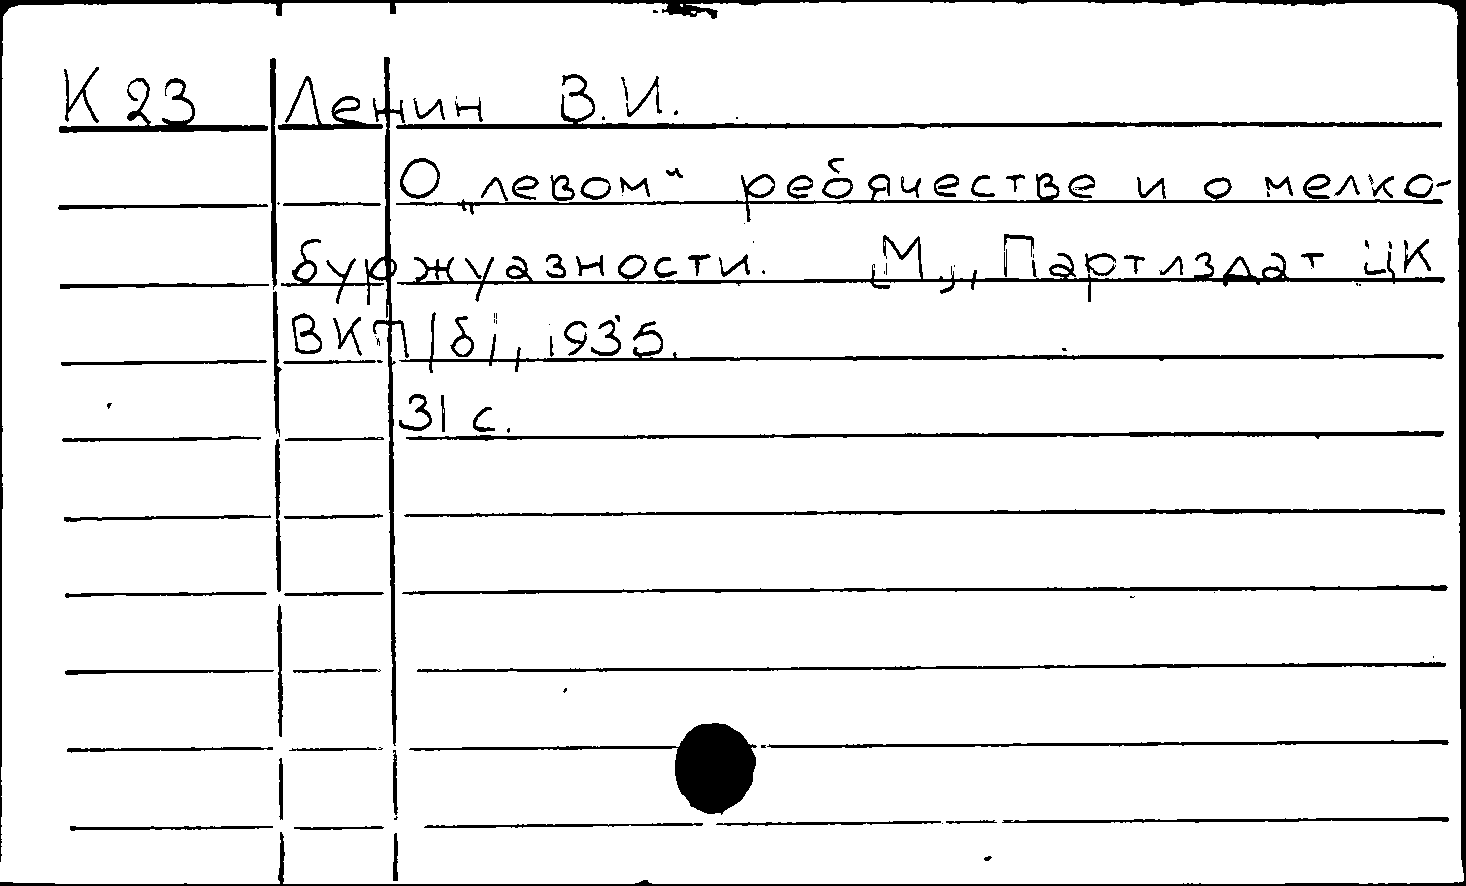 К 23 Ленин В.И.
О „левом“ ребячестве и о мелко-
буржуазности. [М.], Партиздат ЦК
ВКП/б/, 1935.
31 с.